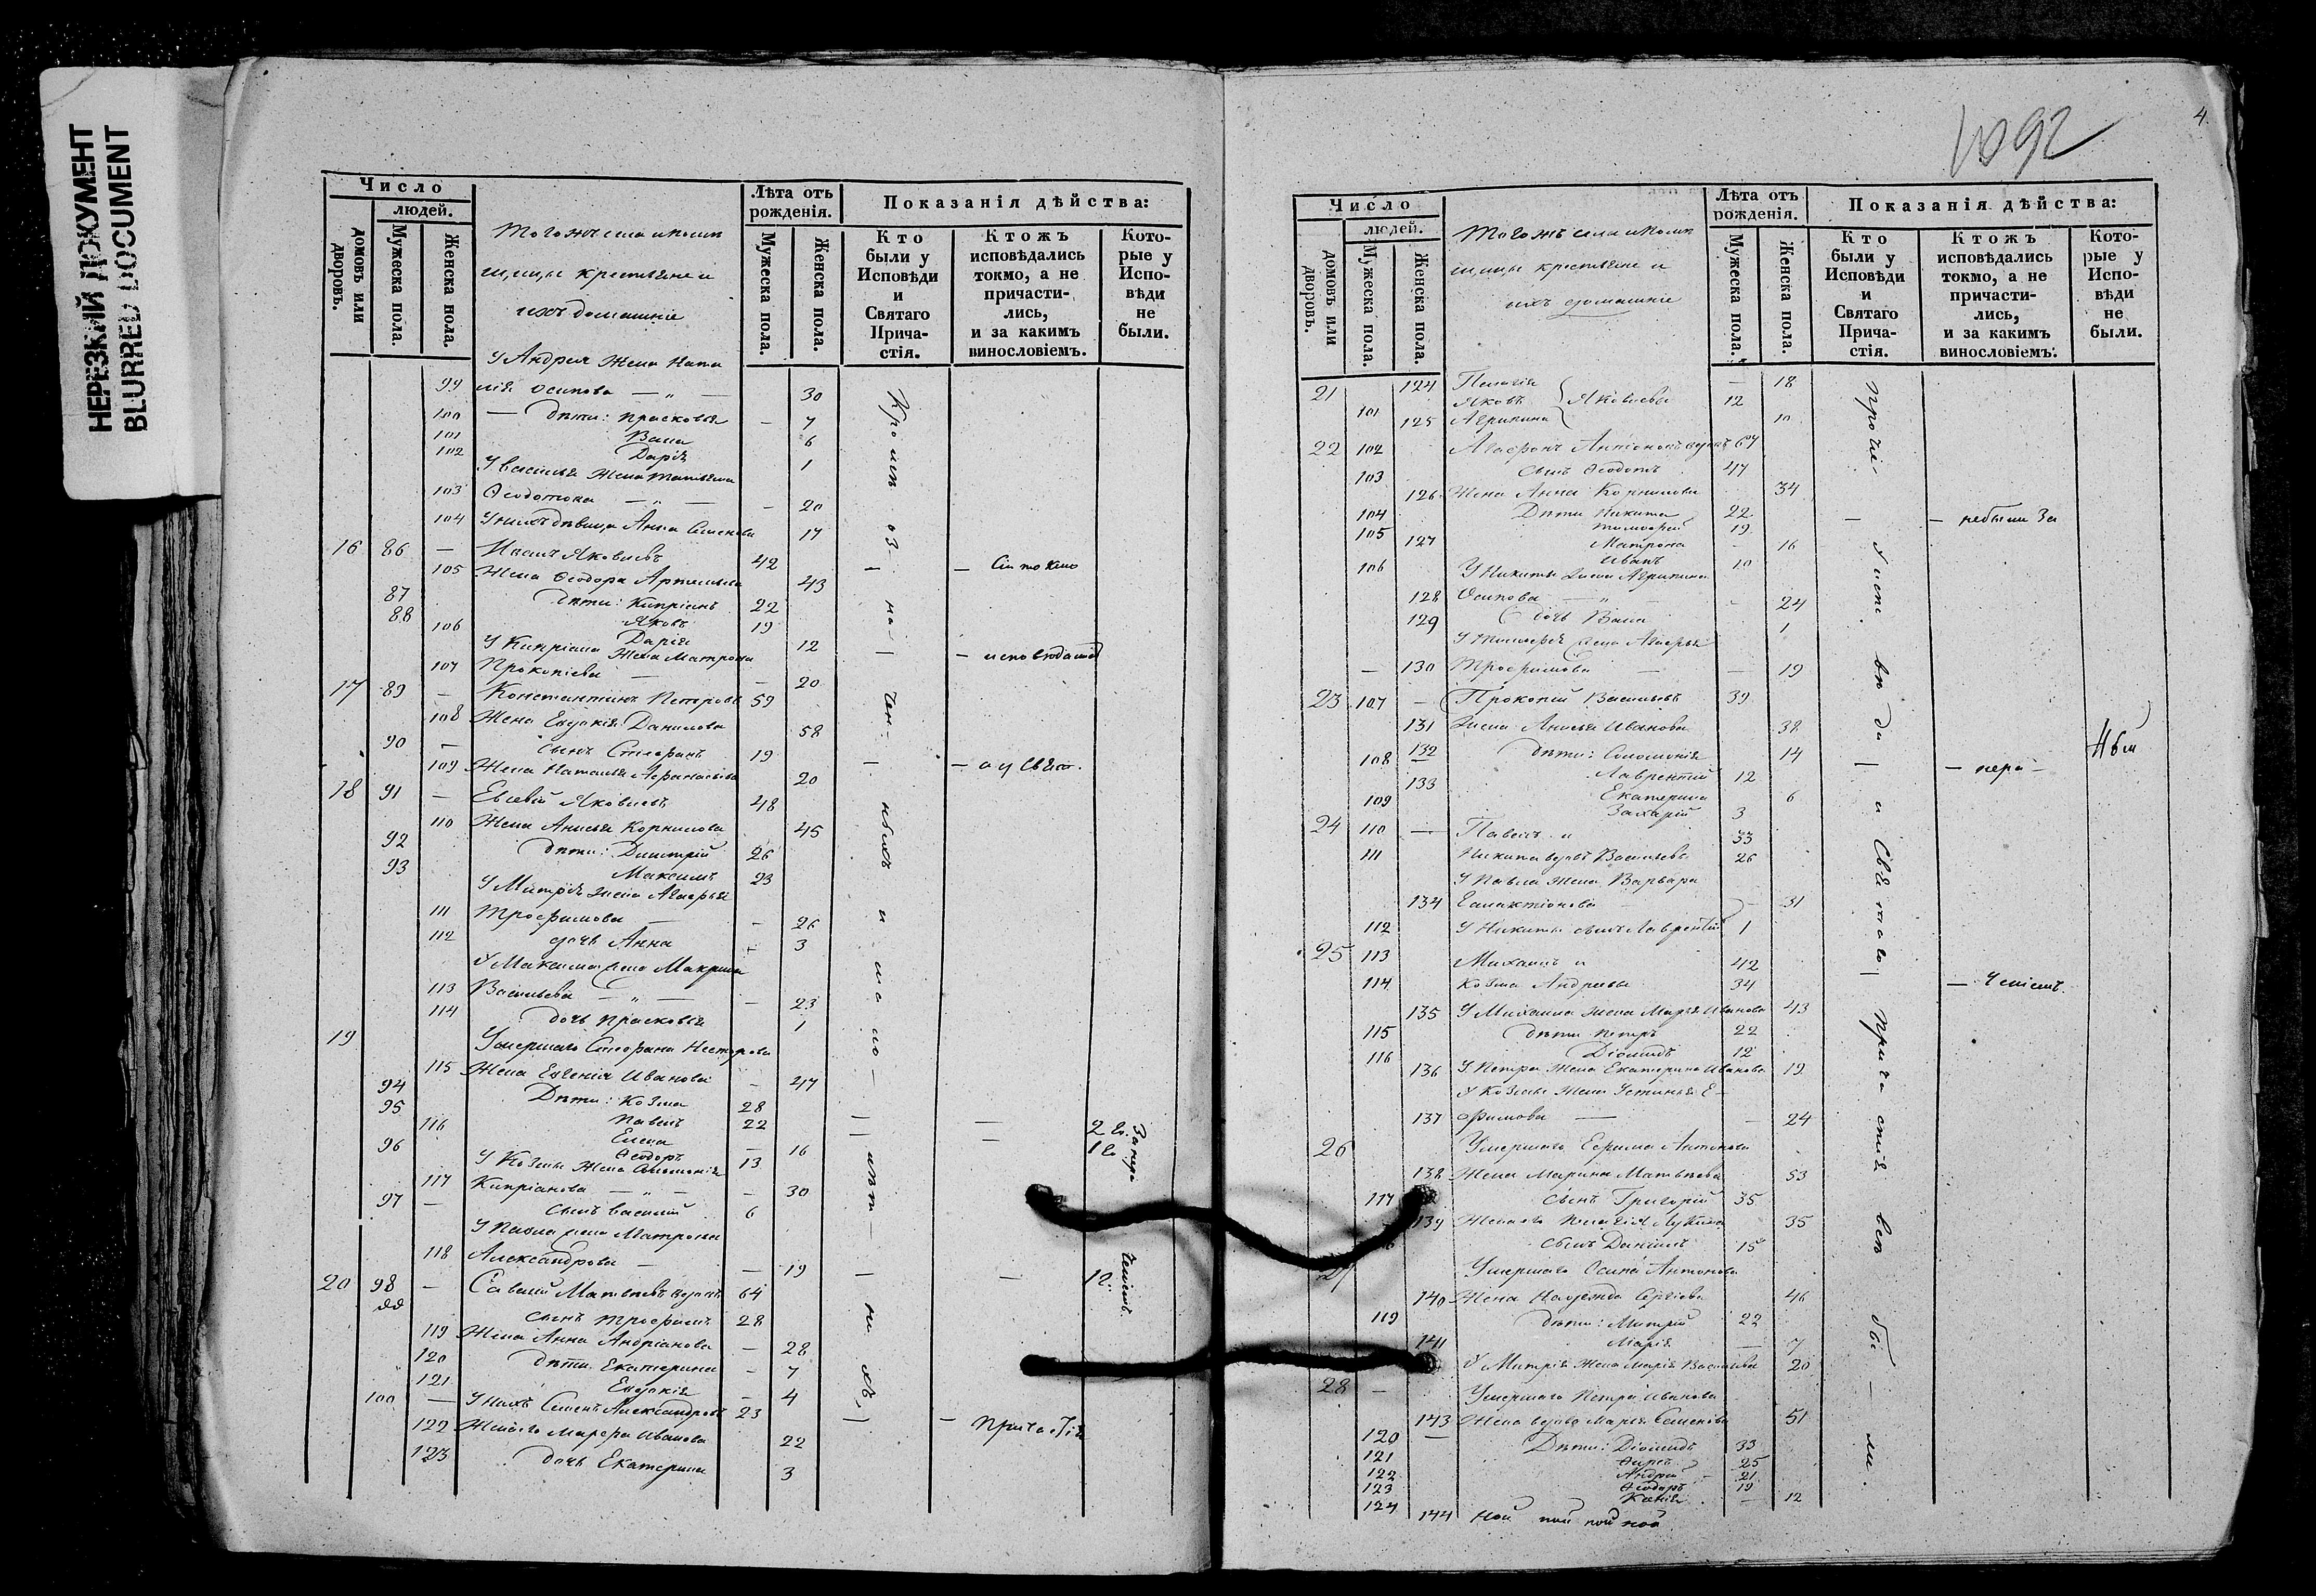 НЕРЕЗКИЙ ДОКУМЕНТ
BLURRED DOCUMENT
Число
людей.
домовъ или дворовъ.
Мужеска пола.
Женска пола.
Тогожъ села и помѣ
щицы крестьяне и
ихъ домашніе
Лѣта отъ рожденія.
Мужеска пола.
Женска пола.
Показанія дѣйства:
Кто были у Исповѣди и Святаго Прича-стія.
Ктожъ исповѣдались токмо, а не причасти-лись, и за какимъ винословіемъ.
Кото-рые у Испо-вѣди не были.
У Андрея жена Ната
99 лія Осипова — „ — 30
100 — дѣти: Прасковья — 7
101 Васа 6
102 Дарія 1
У Василья жена Татьяна
103 Ѳеодотова — „ — 20
104 У нихъ дѣвица Анна Семенова 17
16 86 — Иванъ Яковлевъ 42
105 Жена Ѳеодора Артемьева 43
87 дѣти: Кипріянъ 22
88 Яковъ 19
106 Дарія 12
У Кипріана жена Матрона
107 Прокопіева — 20
17 89 — Константинъ Петровъ 59
108 Жена Евдокія Данилова 58
90 — сынъ Стефанъ 19
109 Жена Наталья Афанасьева 20
18 91 — Евсевій Яковлевъ 48
110 Жена Анисья Корнилова 45
92 дѣти: Димитрій 26
93 Максимъ 23
У Митрія жена Агафья
111 Трофимова — 26
112 дочь Анна 3
У Максима жена Макрина
113 Васильева — „ — 23
114 дочь Прасковія 1
19 Умершаго Стефана Нестерова
115 Жена Евгенія Иванова — 47
94 Дѣти: Козма 28
95 Павелъ 22
116 Елена — 16
96 Ѳеодоръ 13
У Козмы жена Соломонія
117 Кипріанова — „ — 30
97 — сынъ Василій 6
У Павла жена Матрона
118 Александрова — 19
20 98 — Савелій Матвѣевъ вдовъ 64
99 сынъ Трофимъ 28
119 Жена Анна Андріанова — 28
120 дѣти Екатерина — 7
121 Евдокія — 4
100 — У нихъ Семенъ Александровъ 23
122 Жена его Марфа Иванова 22
123 дочь Екатерина 3
— Сіи токмо
— исповѣдались
— а у Свят.
— Причастія
4.
1092
Число
людей.
домовъ или дворовъ.
Мужеска пола.
Женска пола.
Тогожъ села и помѣ
щицы крестьяне и
ихъ домашніе
Лѣта отъ рожденія.
Мужеска пола.
Женска пола.
Показанія дѣйства:
Кто были у Исповѣди и Святаго Прича-стія.
Ктожъ исповѣдались токмо, а не причасти-лись, и за какимъ винословіемъ.
Кото-рые у Испо-вѣди не были.
21 124 Пелагія — 18
101 Яковъ Яковлевы 12
125 Агрипина 10
22 102 Агафонъ Антоновъ вдовъ 67
103 сынъ Ѳеодотъ 47
126 Жена Анна Корнилова 34
104 Дѣти Никита 22
105 Тимофей 19
127 Матрона — 16
106 Иванъ 10
У Никиты жена Агрипина
128 Осипова — „ — 24
129 дочь Васа 1
У Тимофея жена Агафья
130 Трофимова — 19
23 107 — Прокопій Васильевъ 39
131 Жена Анисья Иванова 38
132 дѣти: Соломонія 14
108 Лаврентій 12
133 Екатерина 6
109 Захарій 3
24 110 — Павелъ и 33
111 Никита вдовъ Васильевы 26
У Павла жена Варвара
134 Галактіонова — 31
112 У Никиты сынъ Лаврентій 1
25 113 Михаилъ и 42
114 Козма Андреевы 34
135 У Михаила жена Марья Иванова 43
115 дѣти Петръ 22
116 Діомидъ 12
136 У Петра жена Екатерина Иванова 19
У Козмы жена Устинья Е-
137 фимова — 24
26 Умершаго Ефима Антонова
138 Жена Марина Матвѣева 53
117 сынъ Григорій 35
139 Жена его Пелагія Лукина 35
сынъ Даніилъ 15
27 Умершаго Осипа Антонова
140 Жена Надежда Сергіева 46
119 дѣти: Митрій 22
141 Марія — 7
У Митрія жена Марія Васильева 20
28 — Умершаго Петра Иванова
143 Жена вдова Марія Семенова 51
120 — Дѣти: Діомидъ 33
121 25
122 Андрей 21
123 Ѳеодоръ 19
124
144 12
прочіе у испо вѣ ди и Свя таго Прича стія всѣ бы ли.
— небыли за
— нера-
— чѣніемъ.